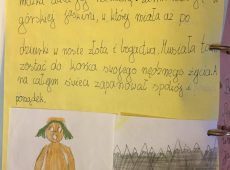 górskiej jaskini, w której miała aż po
dziurki w nosie złota i bogactwa. Musiała tam
zostać do końca swojego nędznego życia a
na całym świecie zapanował spokój i
porządek.